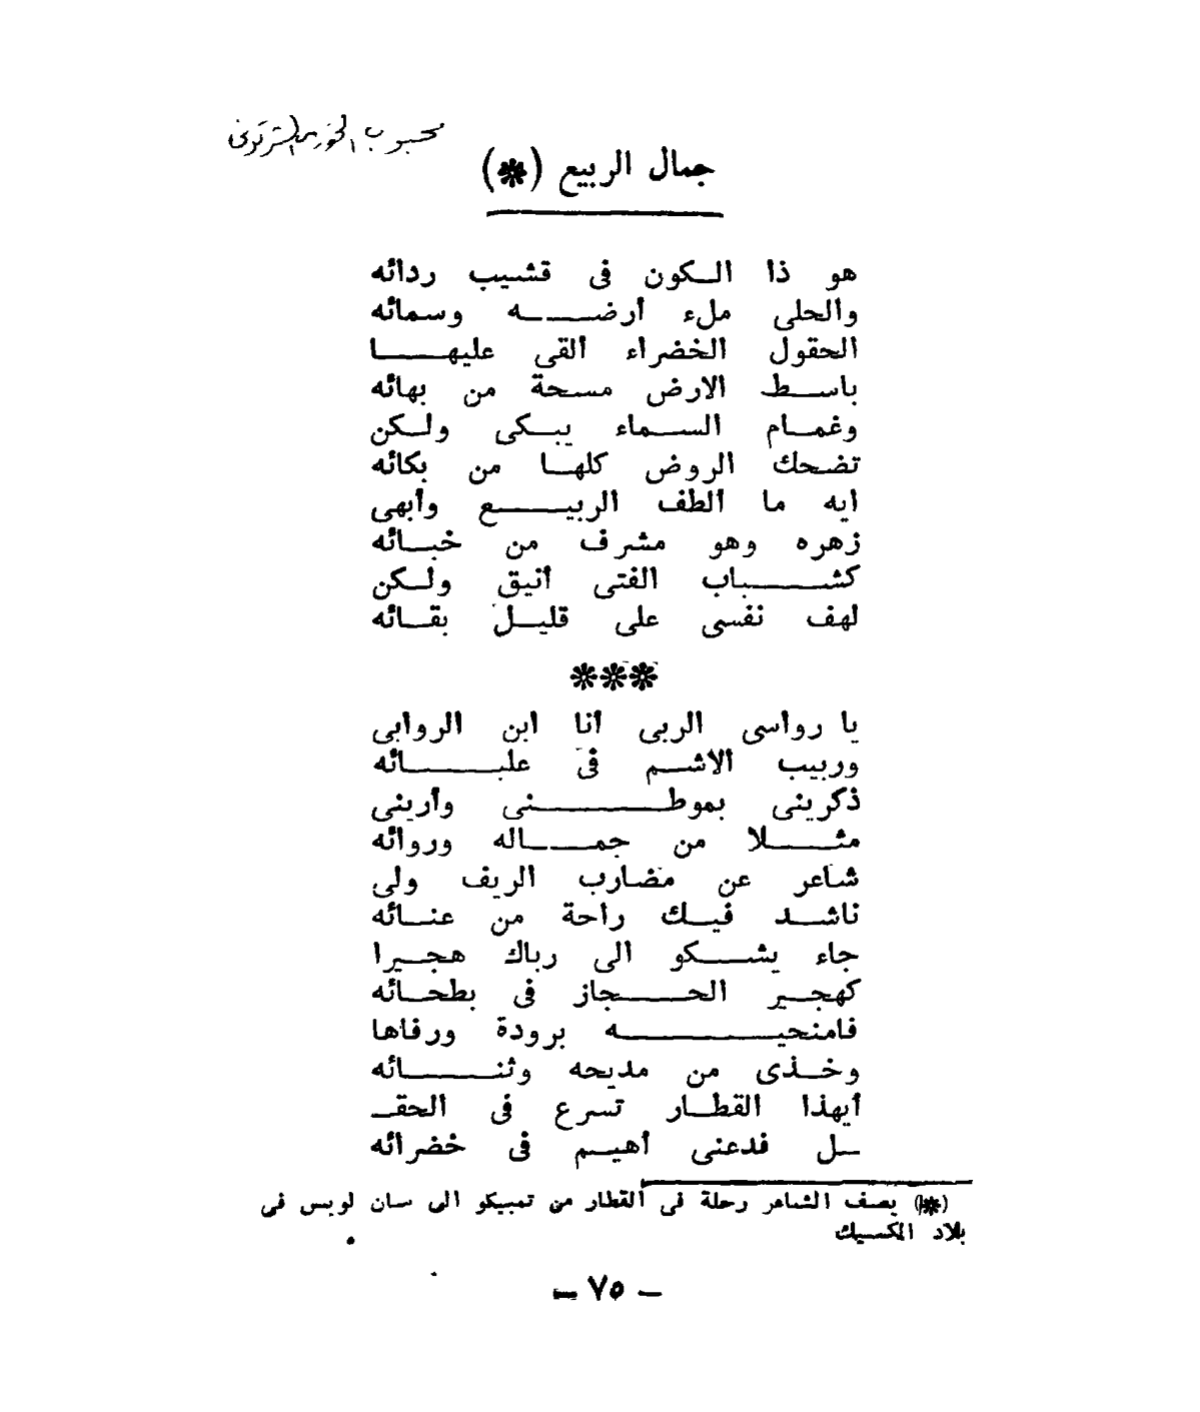 محبوب الخوري الشرتوني
جمال الربيع (*)
هو ذا الكون فى قشيب ردائه
والحلى ملء أرضه وسمائه
الحقول الخضراء ألقى عليها
باسط الارض مسحة من بهائه
وغمام السماء يبكى ولكن
تضحك الروض كلها من بكائه
ايه ما ألطف الربيع وأبهى
زهره وهو مشرف من خبائه
كشباب الفتى أنيق ولكن
لهف نفسى على قليل بقائه
***
يا رواسى الربى أنا ابن الروابى
وربيب الاشم فى عليائه
ذكرينى بموطنى وأرينى
مثلا من جماله وروائه
شاعر عن مضارب الريف ولى
ناشد فيك راحة من عنائه
جاء يشكو الى رباك هجيرا
كهجير الحجاز فى بطحائه
فامنحيه برودة ورفاها
وخذى من مديحه وثنائه
أيهذا القطار تسرع فى الحقـ
ـل فدعنى أهيم فى خضرائه
(*) يصف الشاعر رحلة فى القطار من تمبيكو الى سان لويس فى
بلاد المكسيك .
- ٧٥ -